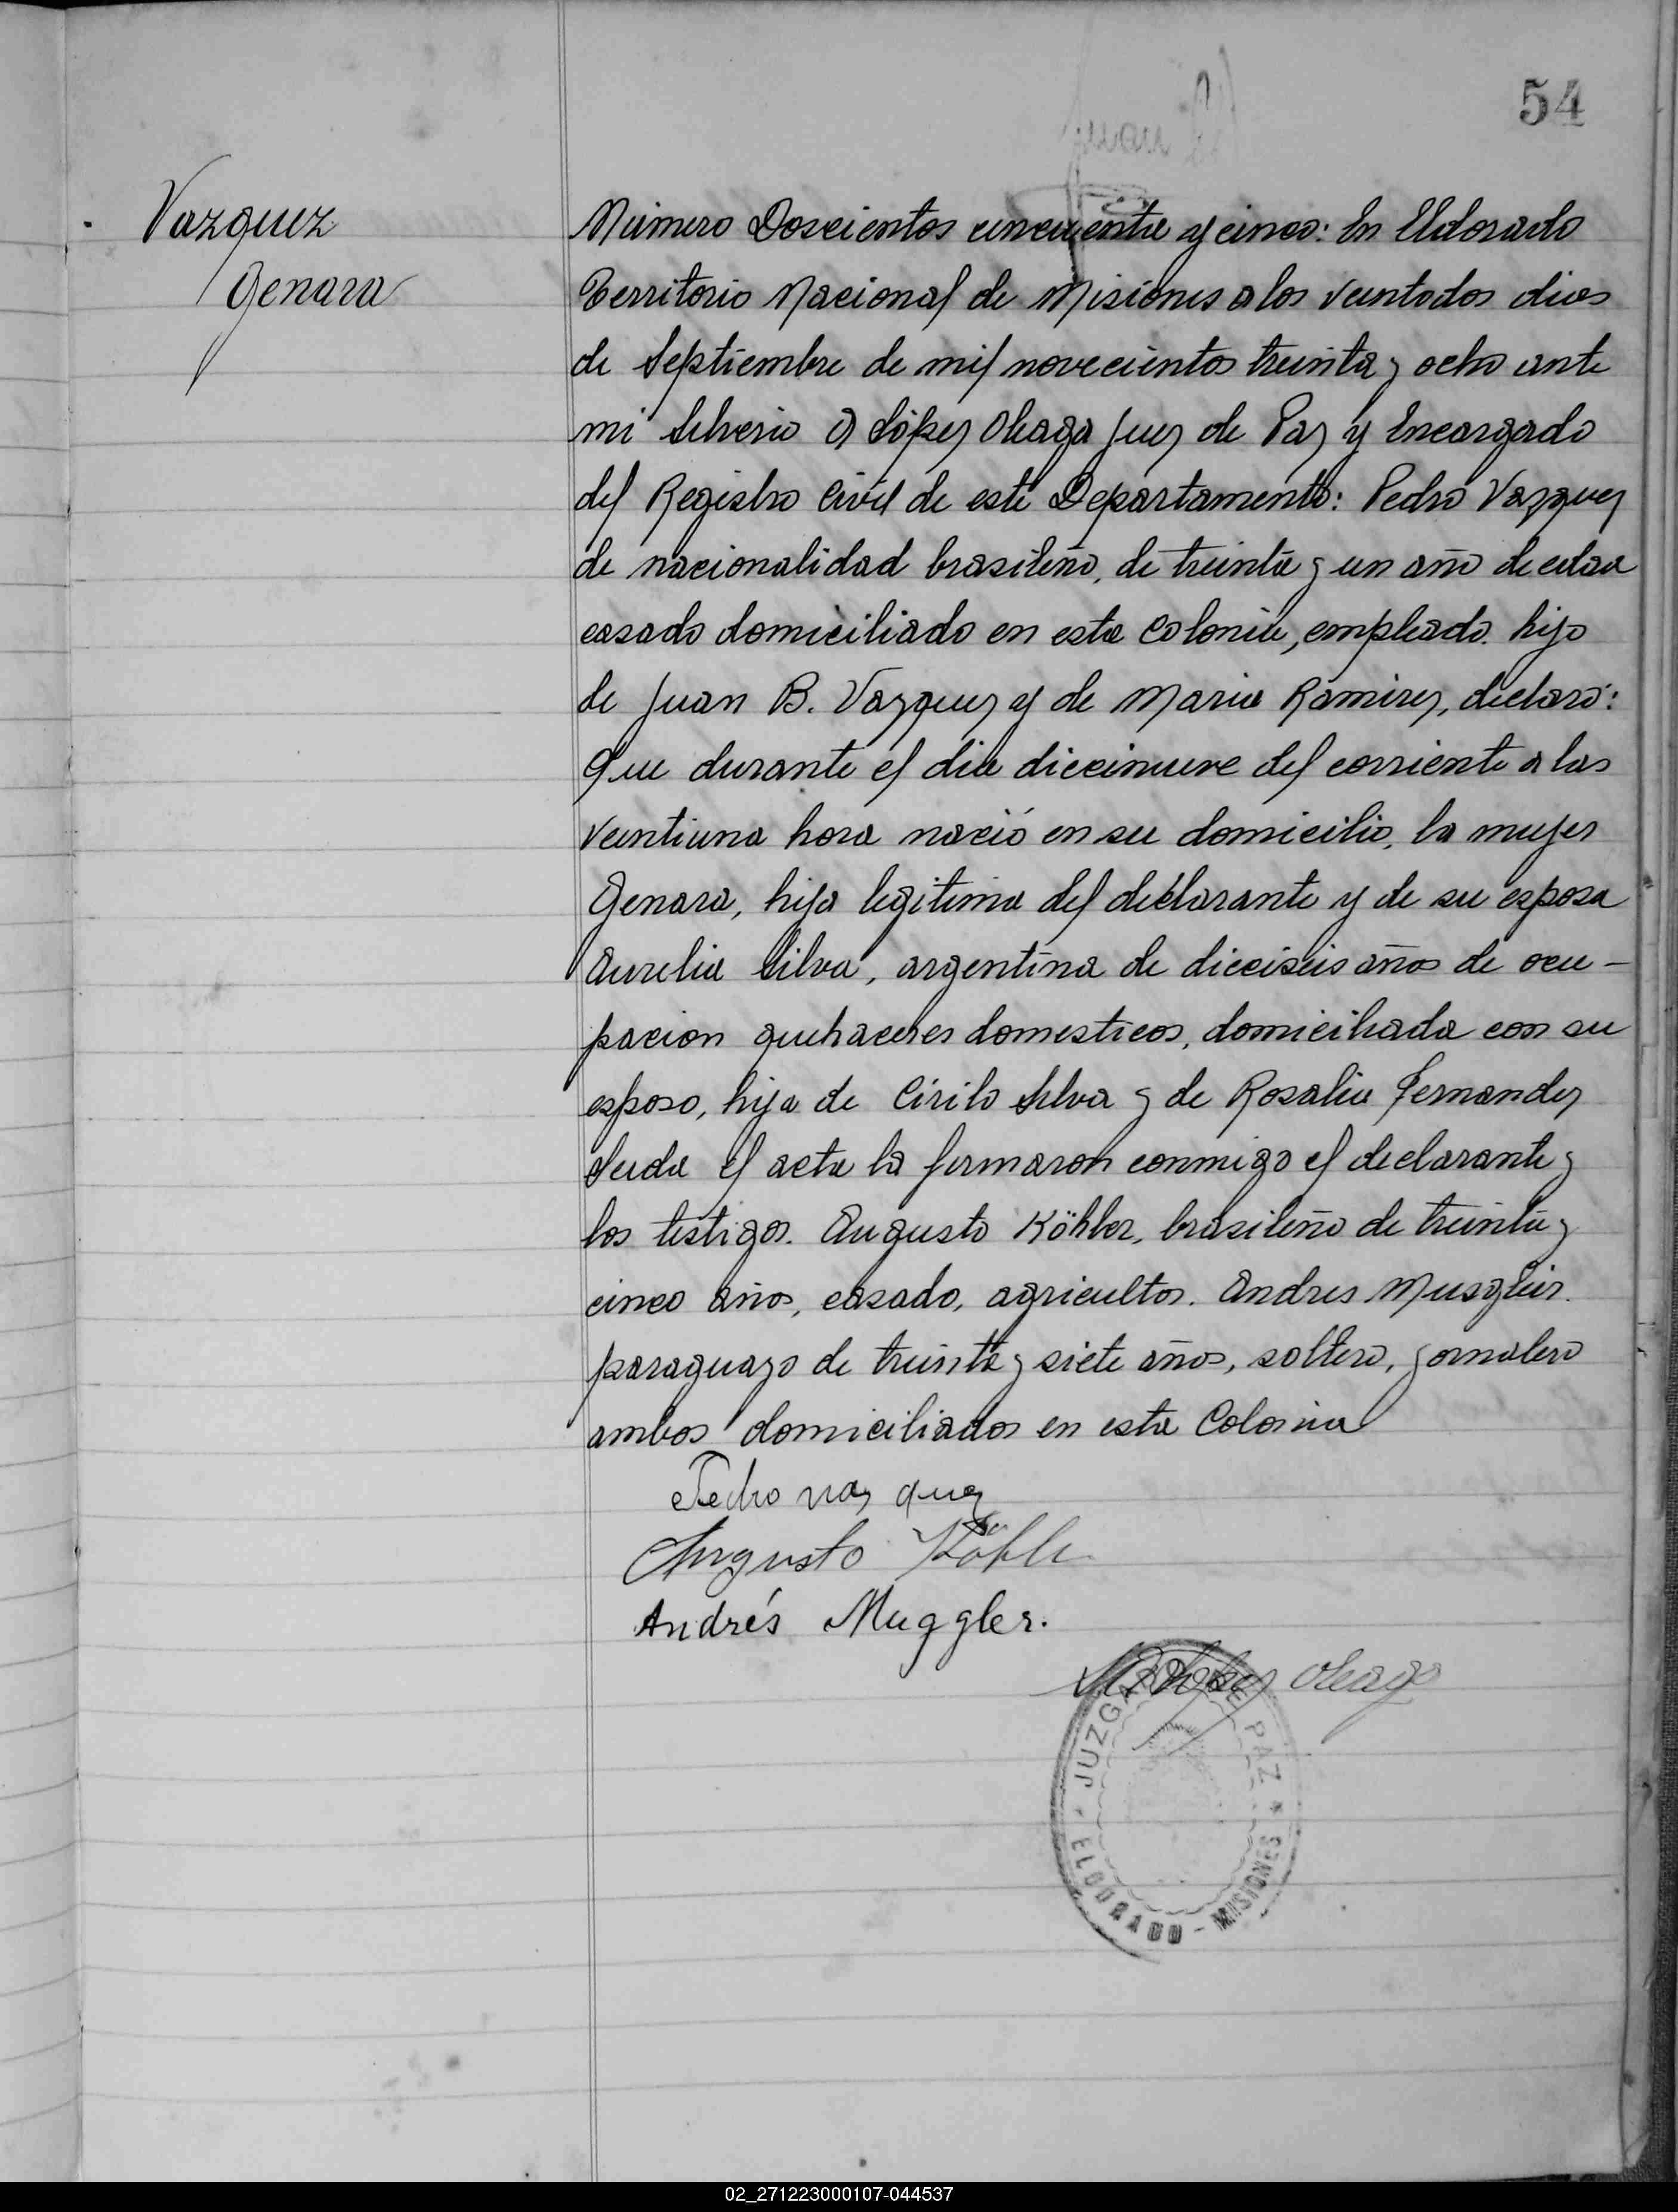 54
Vazquez
Genara
Número Doscientos cincuenta y cinco: En Eldorado
Territorio Nacional de Misiones a los veintodos dias
de Septiembre de mil novecientos treinta y ocho ante
mi Silverio A López Oleaga Juez de Paz y Encargado
del Registro Civil de este Departamento: Pedro Vazquez
de nacionalidad brasileño, de treinta y un año de edad
casado domiciliado en esta Colonia, empleado. hijo
de Juan B. Vazquez y de Maria Ramirez, declaró:
Que durante el dia diecinueve del corriente a las
veintiuna hora nació en su domicilio, la mujer
Genara, hija legitima del declarante y de su esposa
Aurelia Silva, argentina de dieciseis años de ocu-
pacion quehaceres domesticos, domiciliada con su
esposo, hija de Cirilo Silva y de Rosalia Fernandez
Leida el acta la firmaron conmigo el declarante y
los testigos. Augusto Köhler, brasileño de treinta y
cinco años, casado, agricultor. Andres
paraguayo de treinta y siete años, soltero, jornalero
ambos domiciliados en esta Colonia
Pedro vaz quez
Augusto Köhle
Andrés Muggler.
López Oleaga
JUZGADO DE PAZ
ELDORADO - MISIONES
02_271223000107-044537